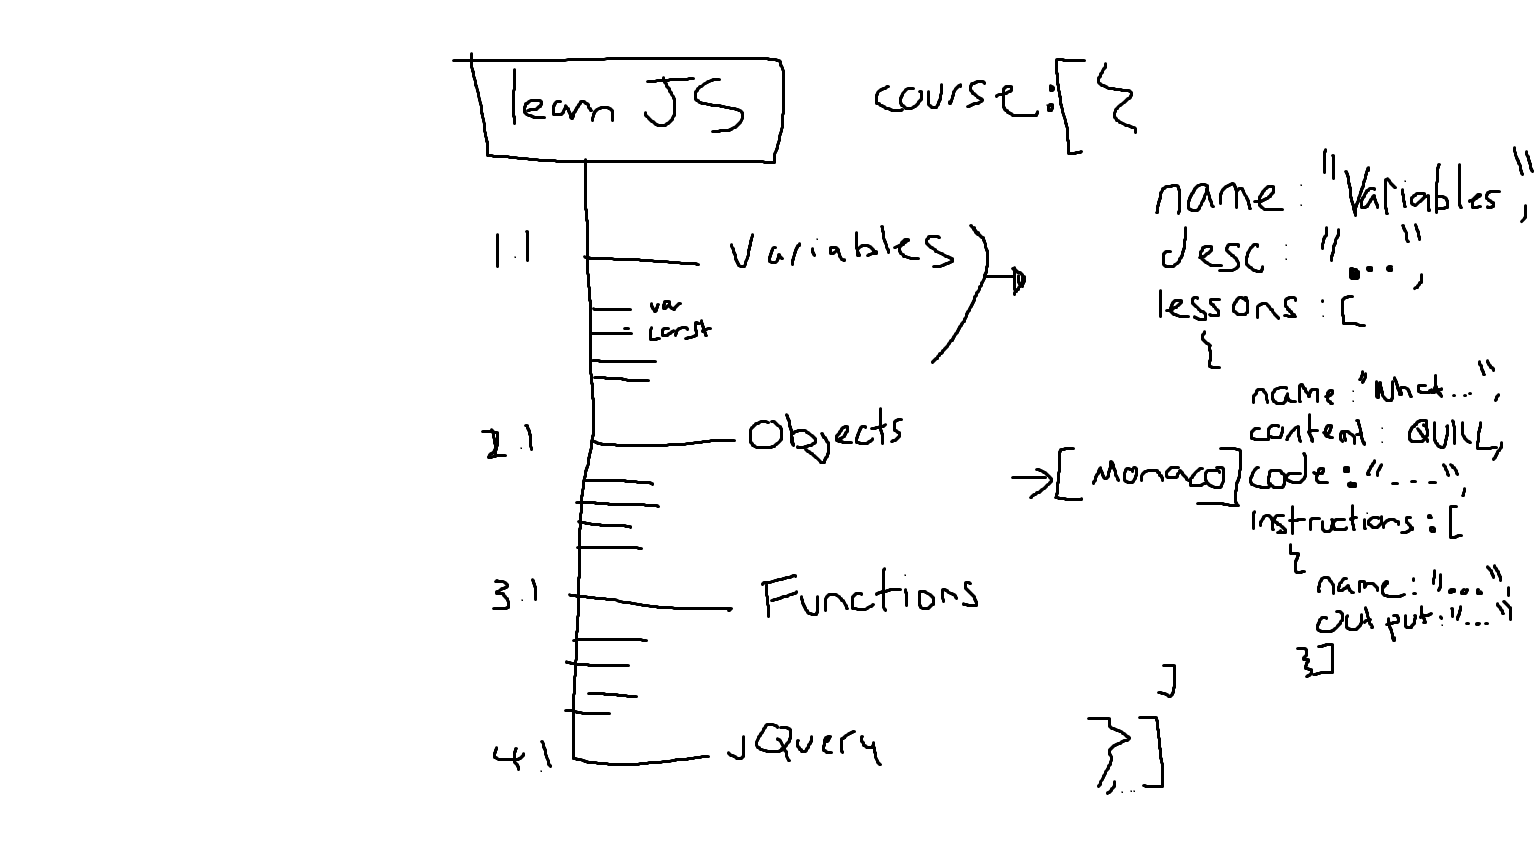 learn JS
1.1 Variables
var
const
2.1 Objects
3.1 Functions
4.1 jQuery
course:[{
name: "Variables",
desc: "...",
lessons:[
{
name:"What...",
content: QUILL,
→[Monaco] code:"---",
instructions:[
{
name:"...",
output:"..."
}]
]
},...]